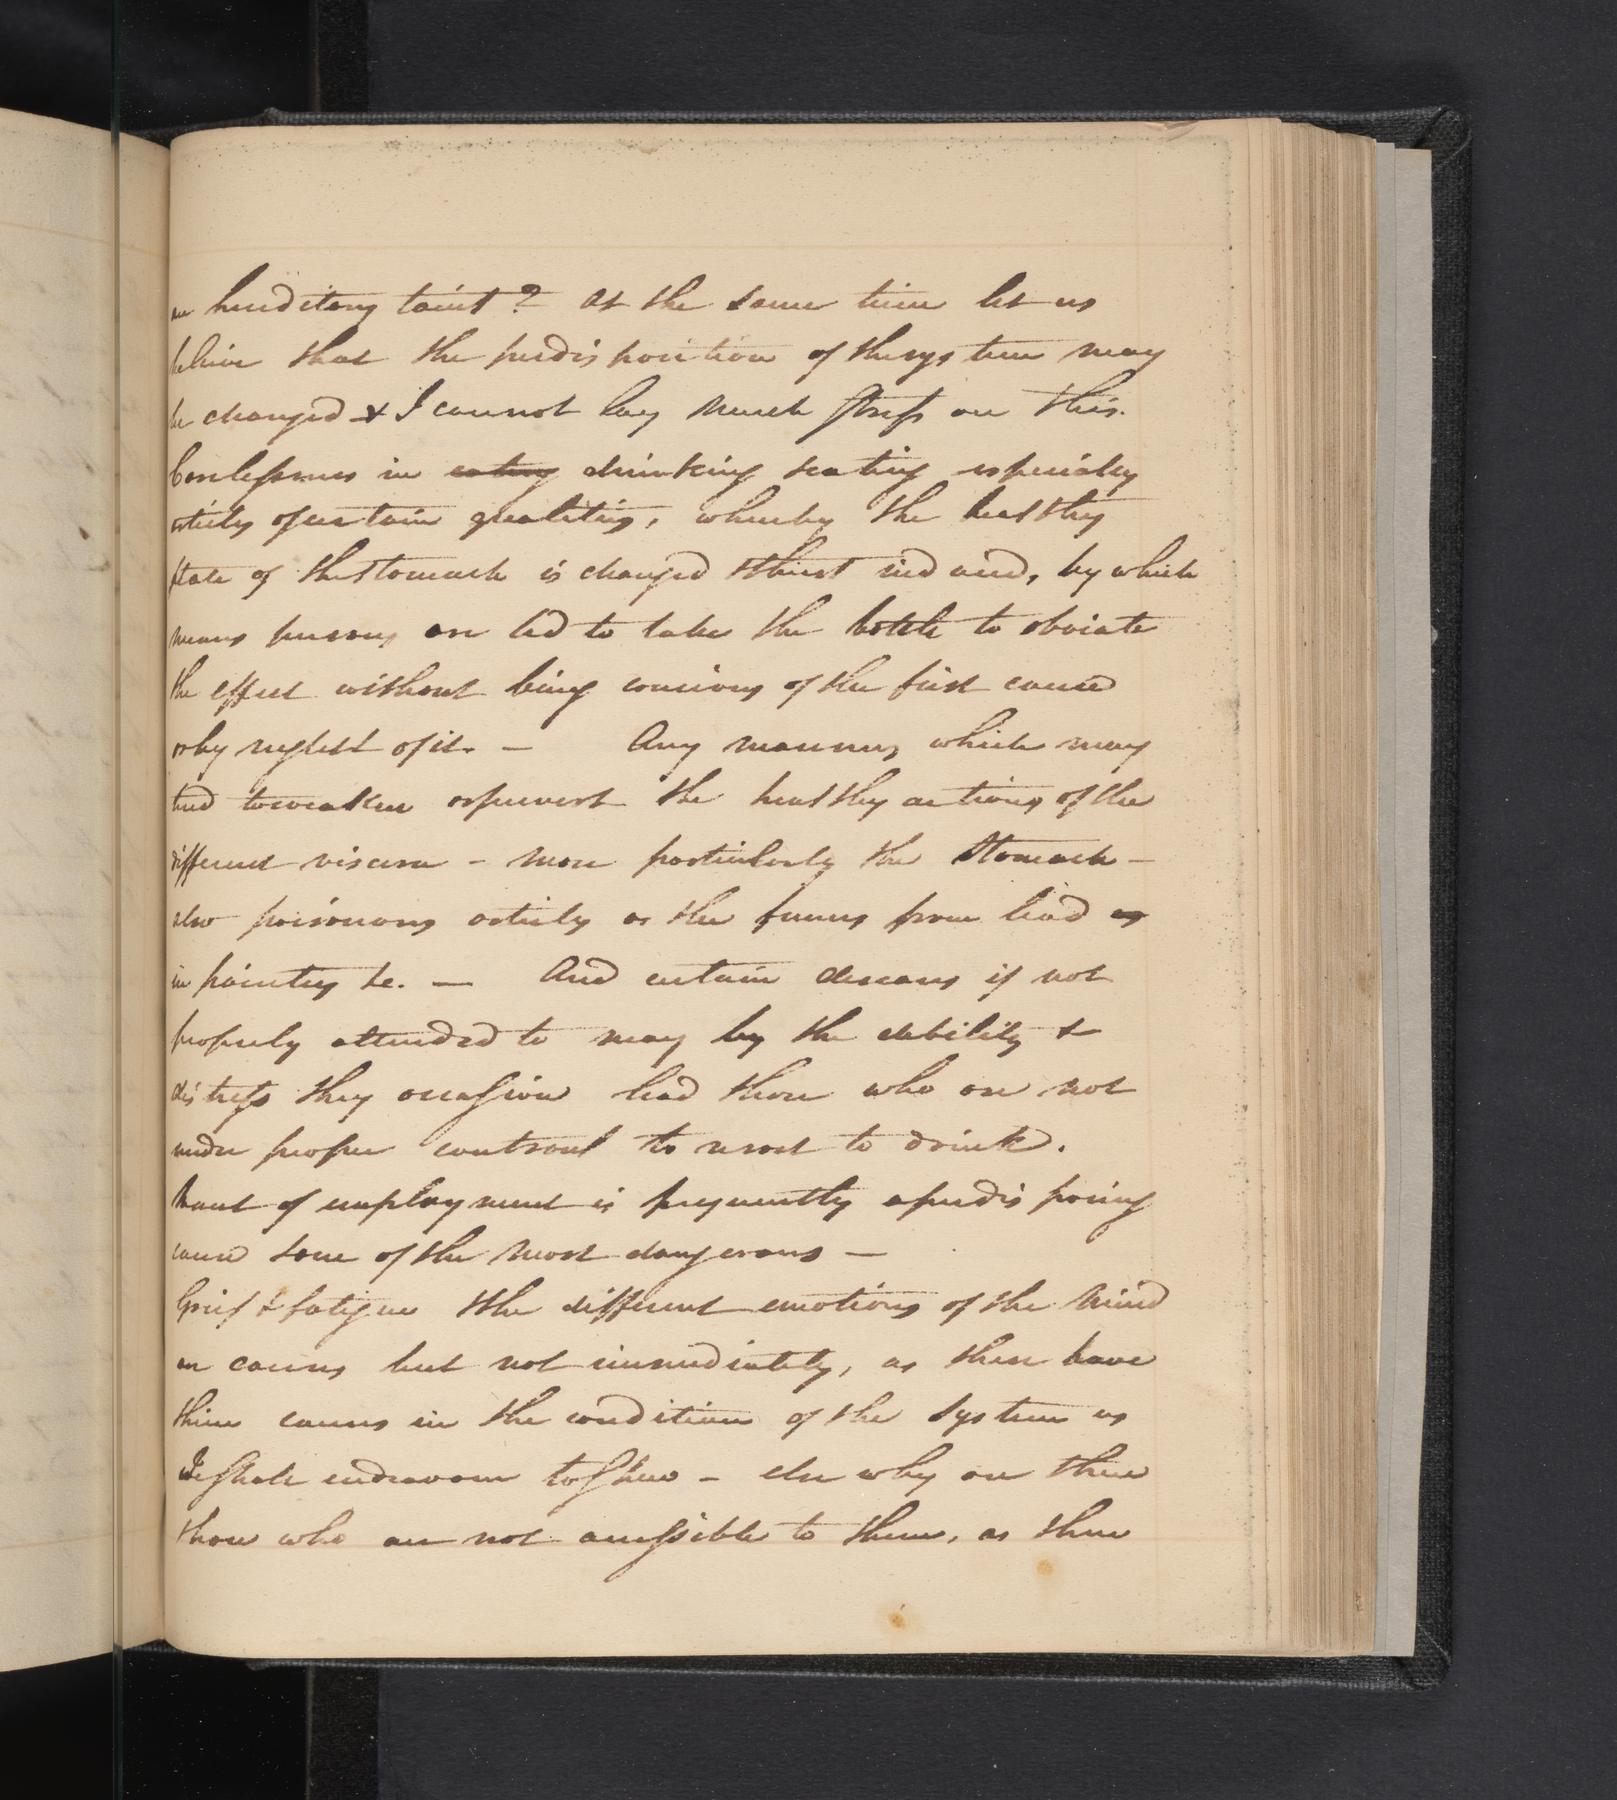 an hereditary taint? At the same time let us
believe that the predisposition of the system may
be changed & I cannot lay much stress on this.
Carelessness in eating drinking & eating especially
articles of certain qualities, whereby the healthy
state of the stomach is changed & thirst induced, by which
means persons are led to take the bottle to obviate
the effect without being concious of the first cause
or by neglect of it. —  Any manner, which may
tend to weaken or pervert the healthy actions of the
different viscera - more particularly the Stomach —
also poisonous articles as the fumes from lead as
in painters &c. —  And certain diseases if not
properly attended to may by the debility &
distress they occassion lead those who are not
under proper controul to resort to drink.
Want of employment is frequently a predisposing
cause & one of the most dangerous —
Grief & fatigue & the different emotions of the mind
are causes but not immediately, as these have
their causes in the condition of the system as
I shall endeavour to shew — else why are there
those who are not accessible to them, as there